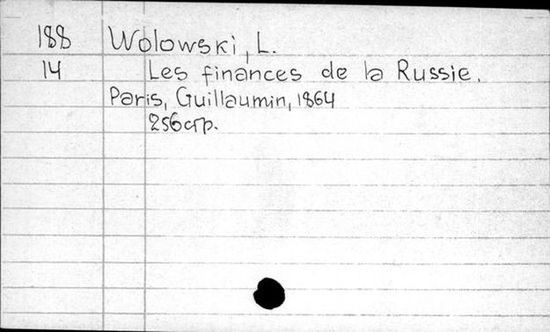 188 Wolowski, L.
14 Les finances de la Russie.
Paris, Guillaumin, 1864
256 стр.